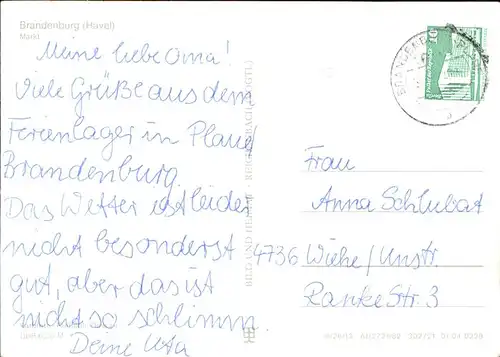 Brandenburg (Havel)
Markt
Meine liebe Oma!
Viele Grüße aus dem
Ferienlager in Plaue/
Brandenburg.
Das Wetter ist leider
nicht besonderst
gut, aber das ist
nicht so schlimm.
Deine Uta
BILD UND HEIMAT REICHENBACH (VOGTL)
10
Frau
Anna Schlubat
4736 Wiehe/Unstr.
Ranke Str. 3